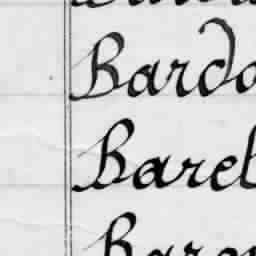 Bardo
Barel
Baron